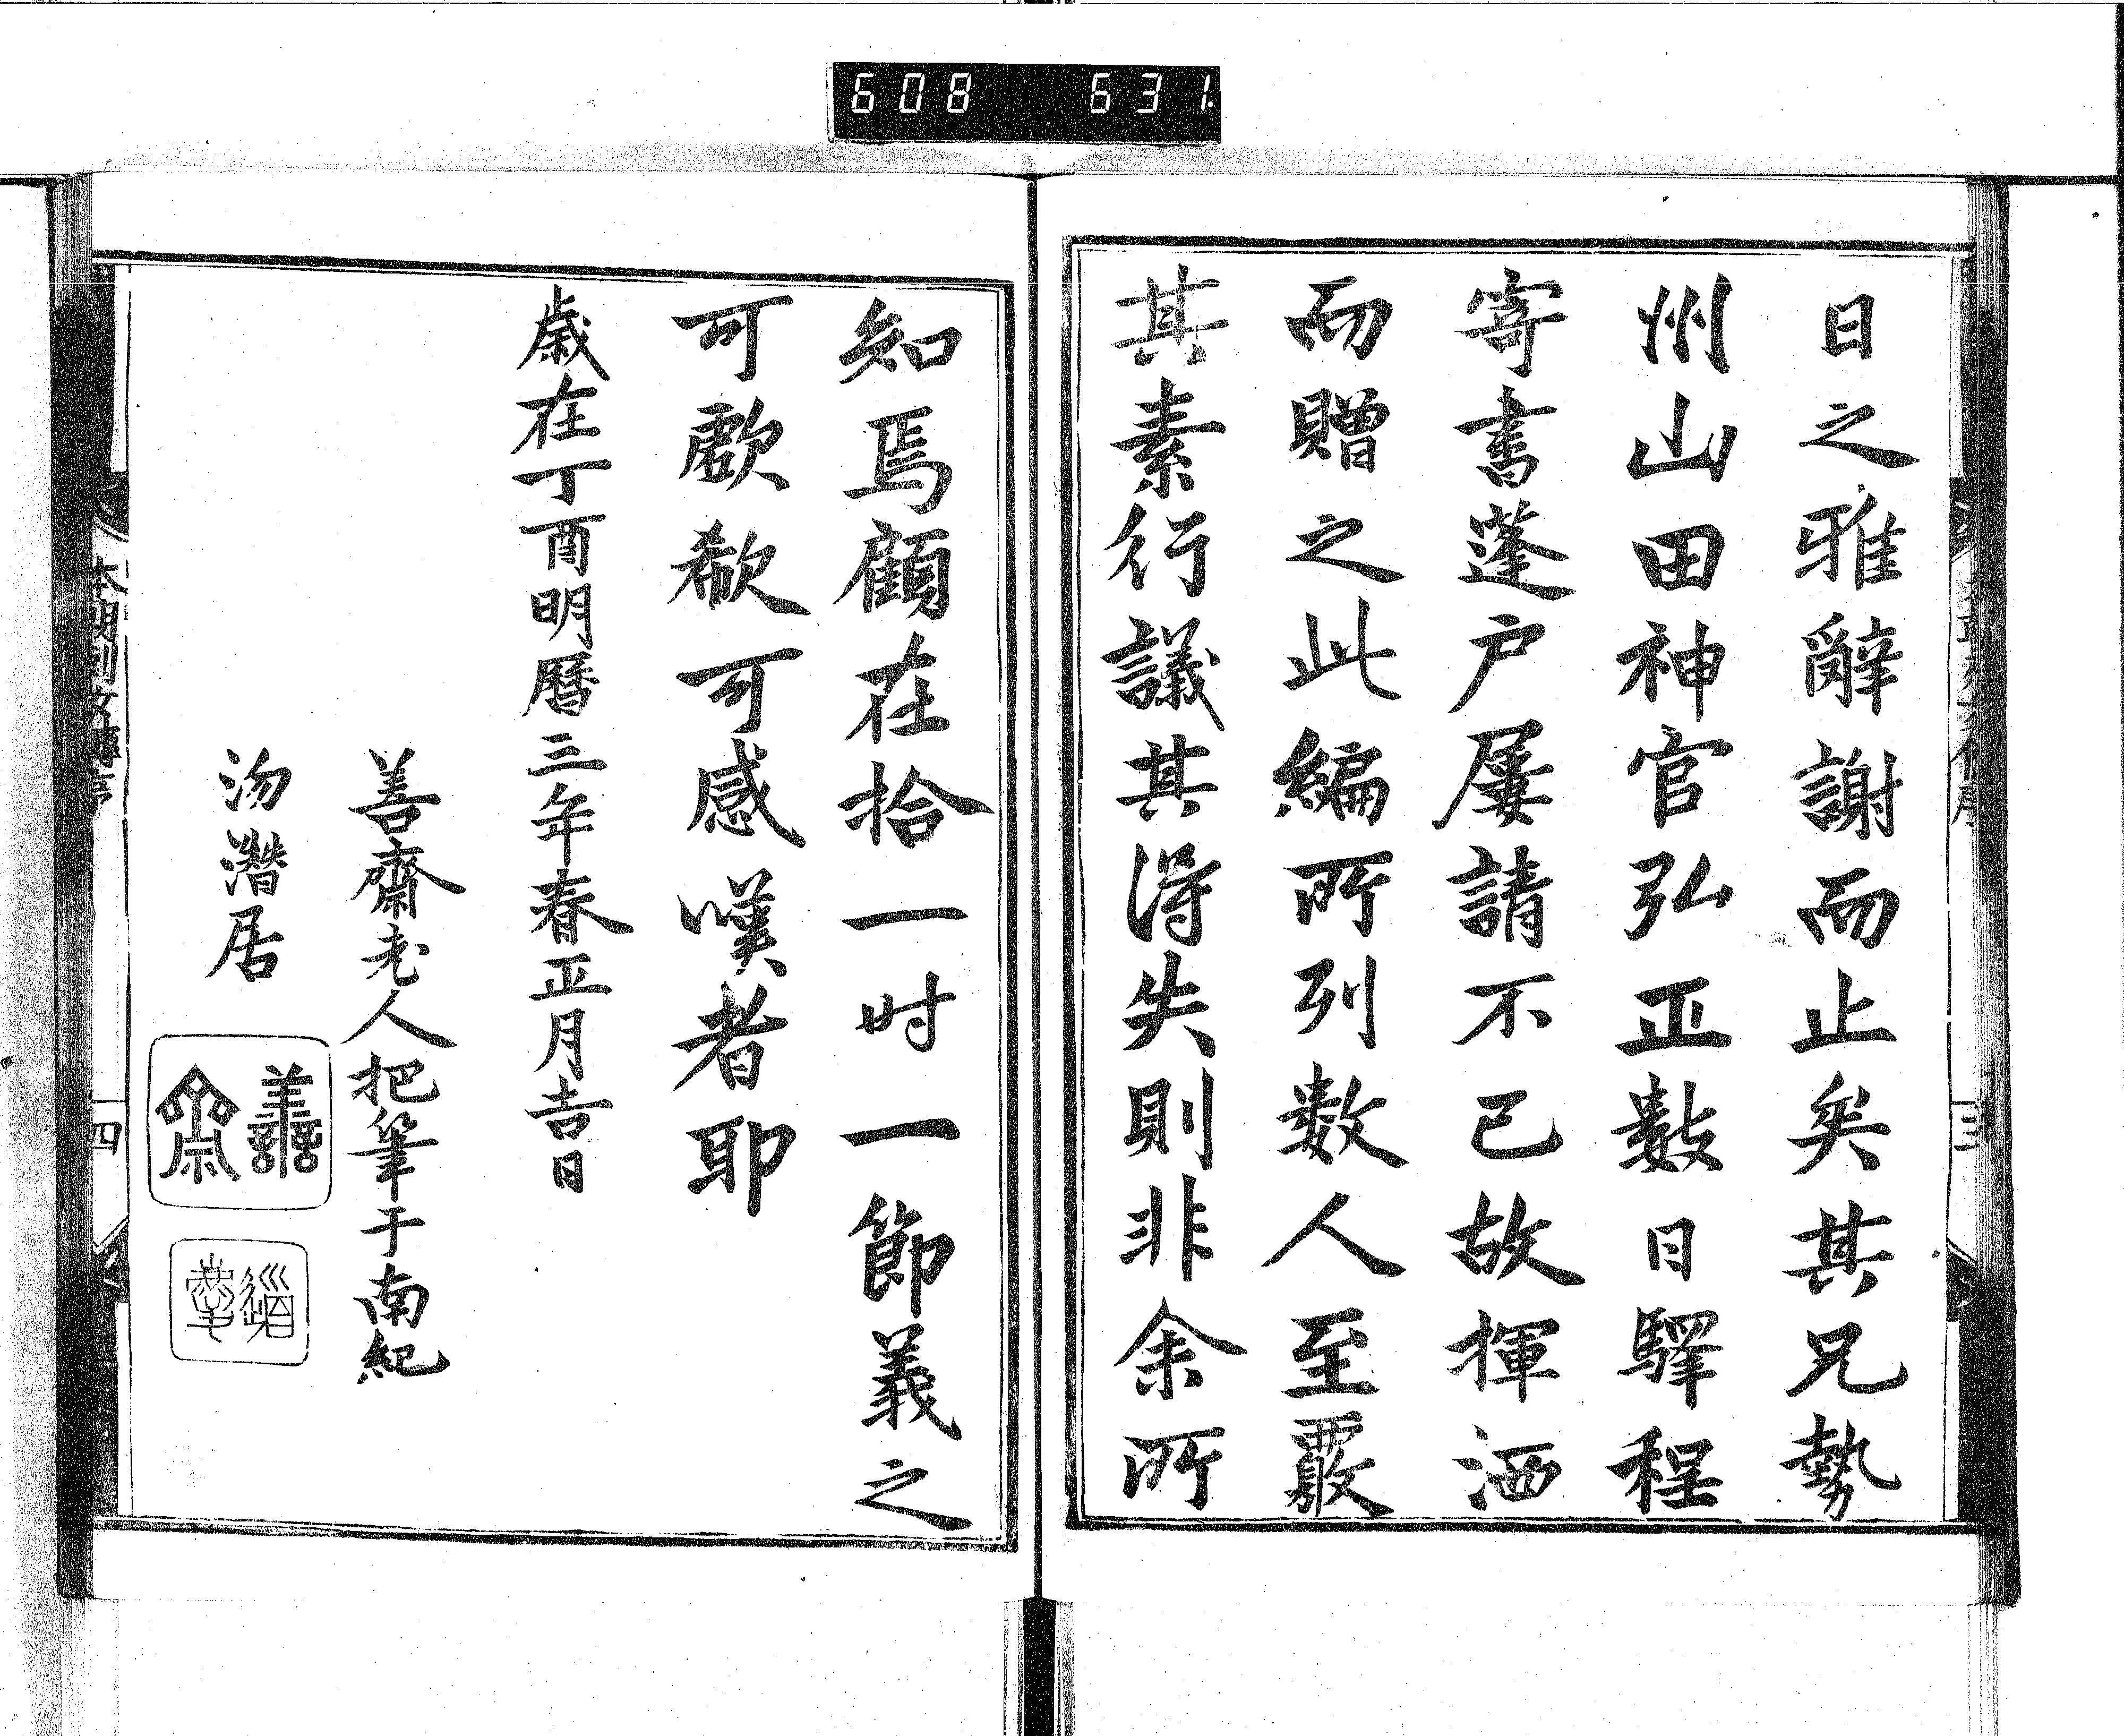 608 631
日之雅辭謝而止矣其兄勢
州山田神官弘正數日驛程
寄書蓬户屢請不已故揮洒
而贈之此編所列数人至覈
其素行議其得失則非余所
知焉顧在拾一时一節義之
可歔欷可感嘆者耶
歳在丁酉明曆三年春正月吉日
善齋老人把筆于南紀
汤潛居
善齋
本朝列女傳序
四
三